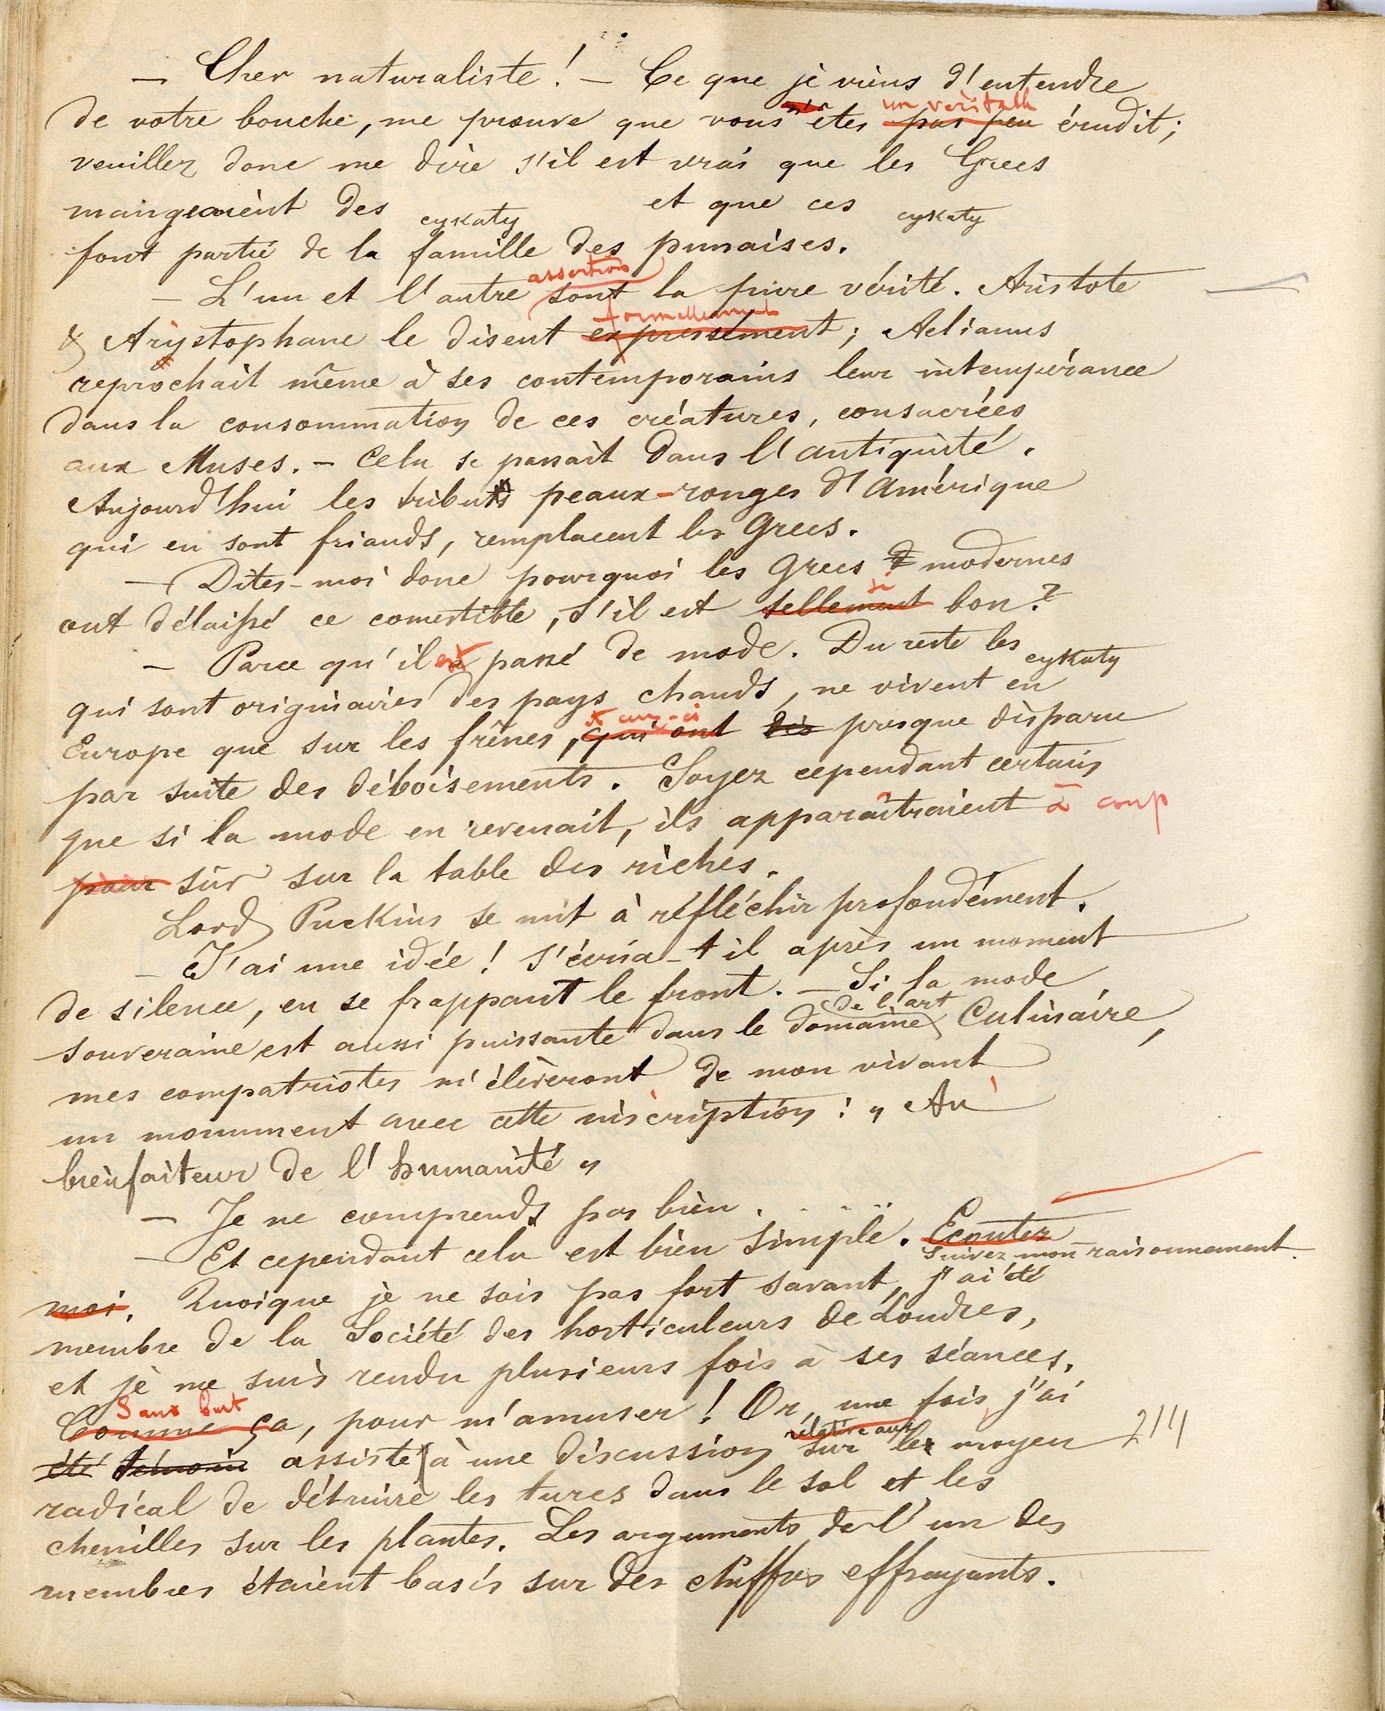 — Cher naturaliste! — Ce que je viens d'entendre
de votre bouche, me prouve que vous êtes un véritabl pas peu érudit;
veuillez donc me dire s'il est vrai que les Grecs
mangeaient des cykaty et que ces cykaty
font partie de la famille des punaises.
— L'un et l'autre assertions sont la pure vérité. Aristote
& Arystophane le disent formellement expressément; Aelianus
reprochait même à ses contemporains leur intempérance
dans la consommation de ces créatures, consacrées
aux Muses. — Cela se passait dans l'antiquité.
Aujourd'hui les tribus peaux-rouges d'Amérique
qui en sont friands, remplacent les Grecs.
— Dites-moi donc pourquoi les Grecs modernes
ont délaissé ce comestible, s'il est si tellement bon?
— Parce qu'il est passé de mode. Du reste les cykaty
qui sont originaires des pays chauds, ne vivent en
Europe que sur les frênes, & ceux-ci qui ont dis presque disparu
par suite des déboisements. Soyez cependant certains
que si la mode en revenait, ils apparaîtraient à coup
pour sûr sur la table des riches.
Lord Puckins se mit à réfléchir profondément.
— J'ai une idée! s'écria-t il après un moment
de silence, en se frappant le front. — Si la mode
souveraine est aussi puissante dans le domaine de l'art Culinaire,
mes compatriotes m'élèveront de mon vivant
un monument avec cette inscription: „ Au
bienfaiteur de l'humanité „
— Je ne comprends pas bien . . . . .
— Et cependant cela est bien simple. Ecoutez Suivez mon raisonnement.
moi. Quoique je ne sois pas fort savant, j'ai été
membre de la Société des horticulteurs de Londres,
et je me suis rendu plusieurs fois à ses séances.
Sans but Comme ça, pour m'amuser! Or, une fois j'ai
été témoin assisté à une discussion relative aux sur les moyen 214
radical de détruire les tures dans le sol et les
chenilles sur les plantes. Les arguments de l'un des
membres étaient basés sur des chiffres effrayants.